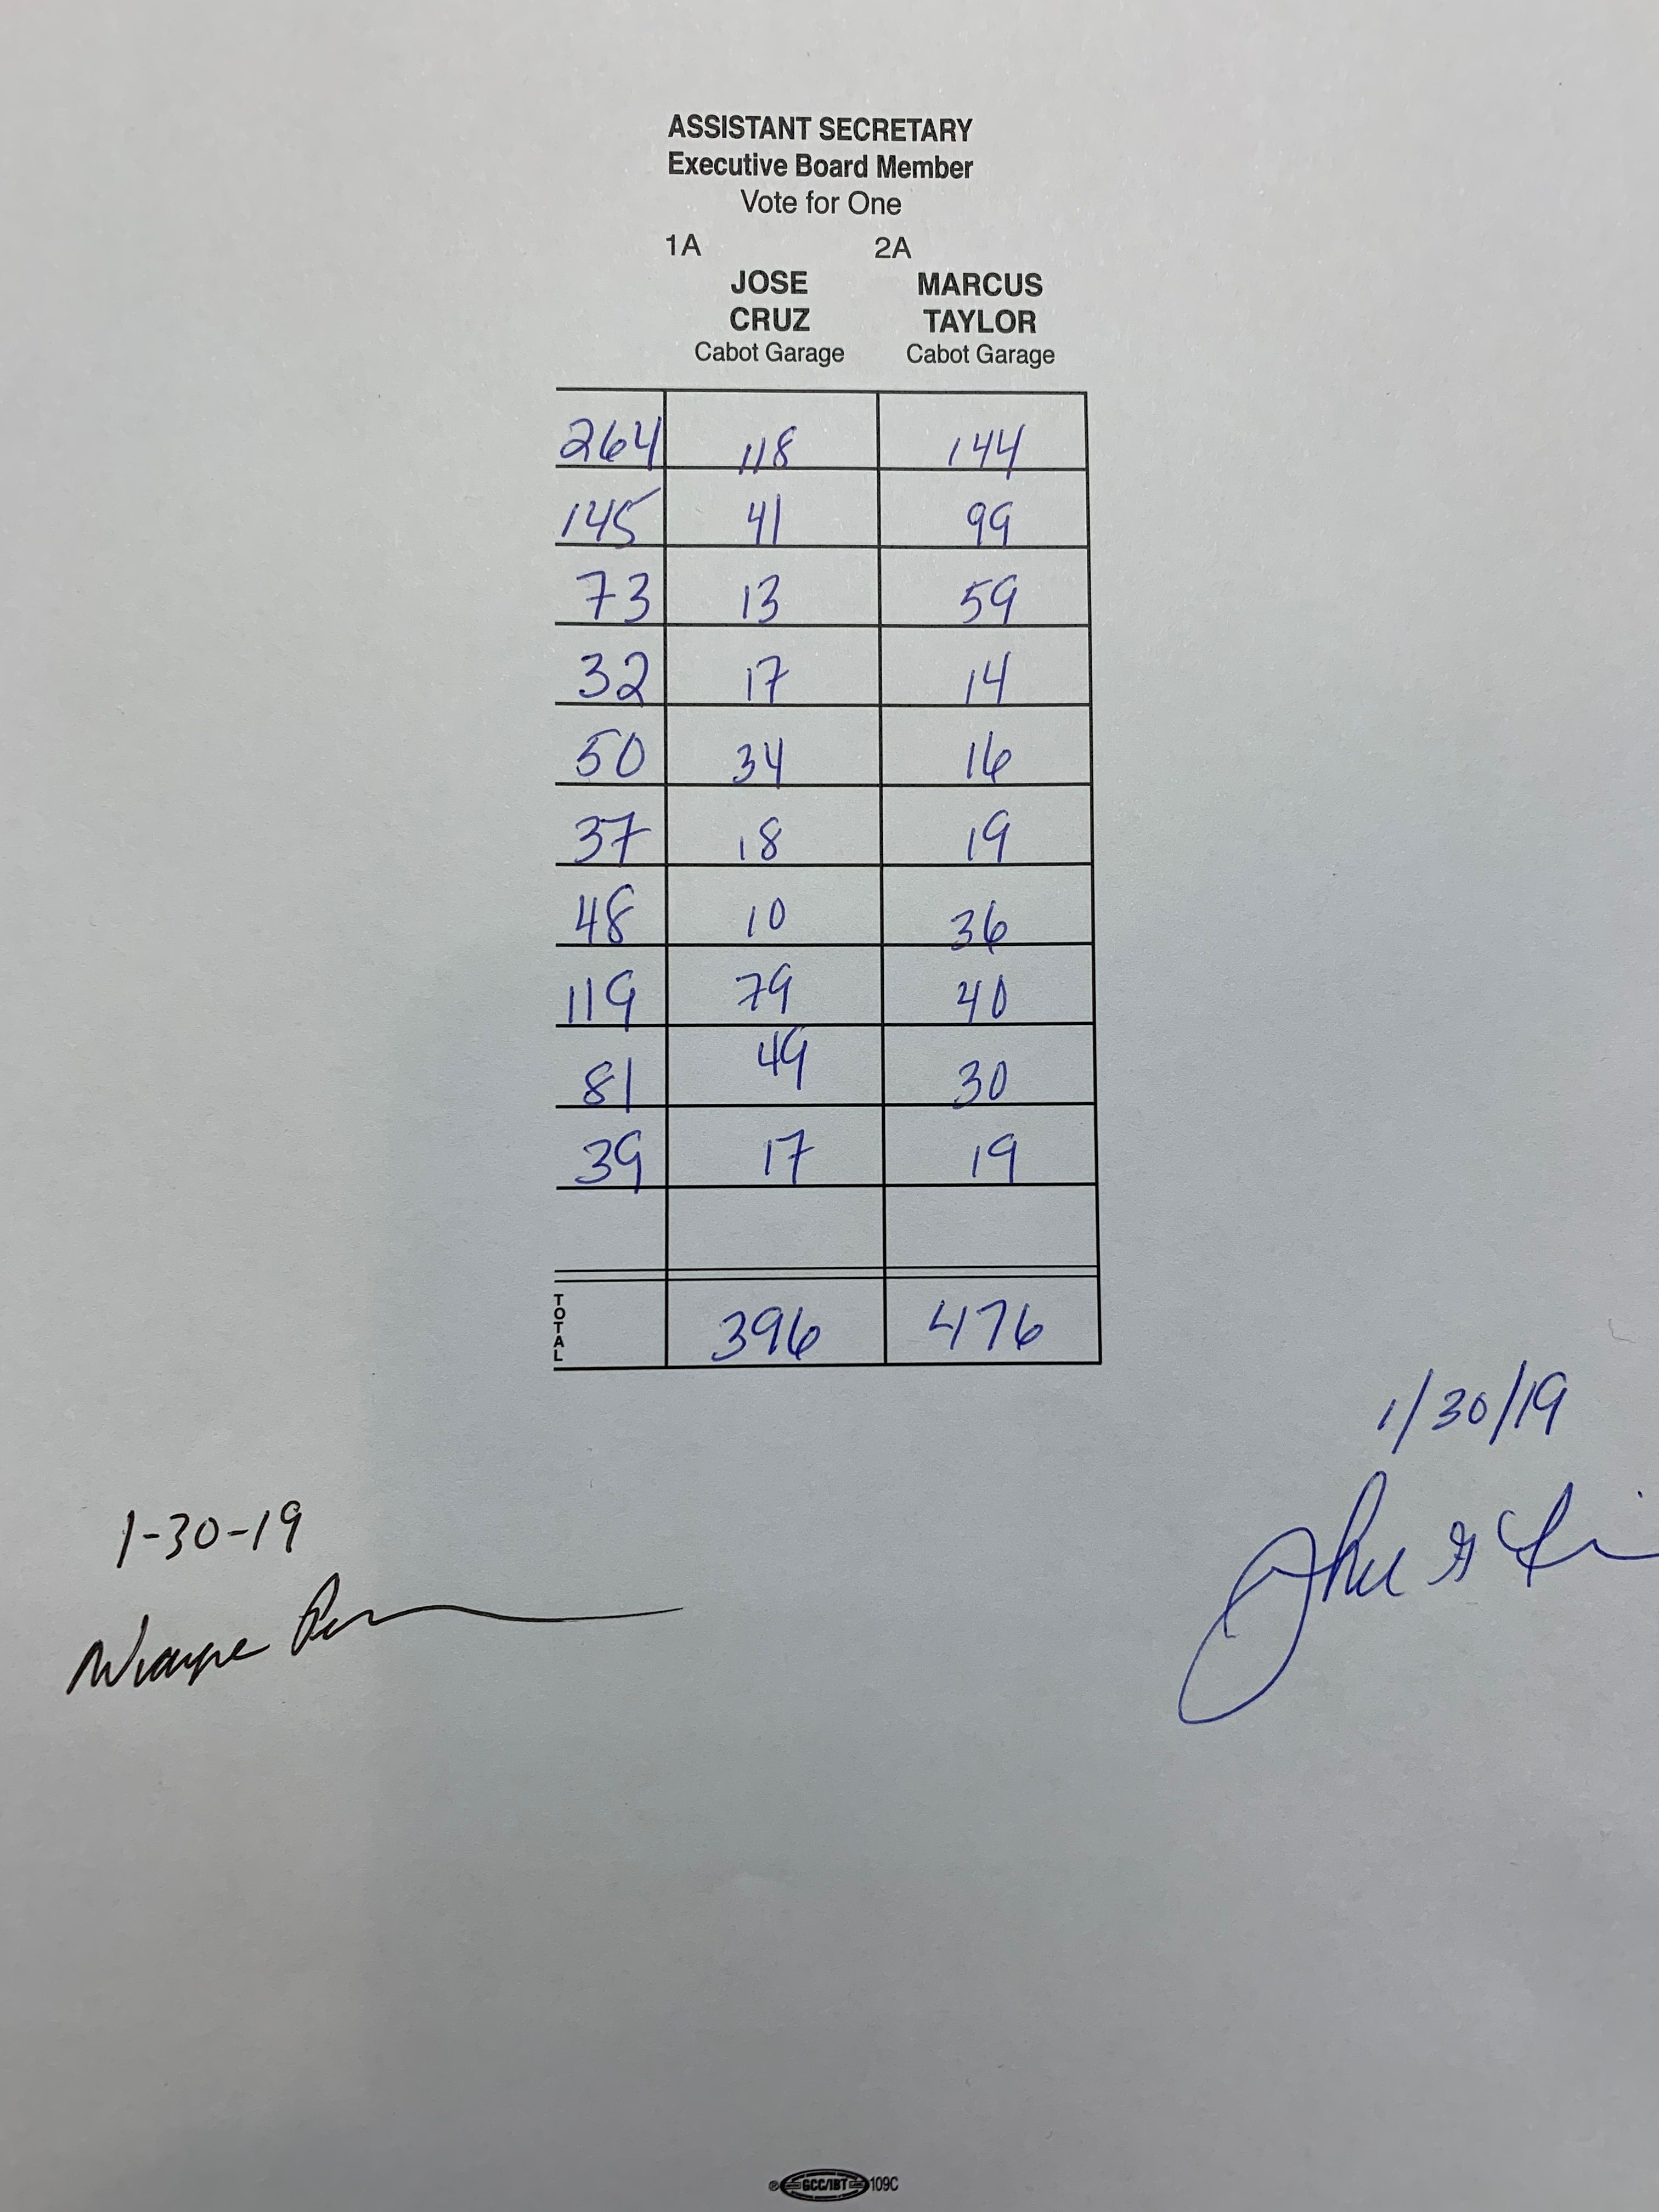 ASSISTANT SECRETARY
Executive Board Member
Vote for One
1A 2A
JOSE MARCUS
CRUZ TAYLOR
Cabot Garage Cabot Garage
264 118 144
145 41 99
73 13 59
32 17 14
50 34 16
37 18 19
48 10 36
119 79 40
81 49 30
39 17 19
TOTAL 396 476
1/30/19
1-30-19
® GCC/IBT 109C